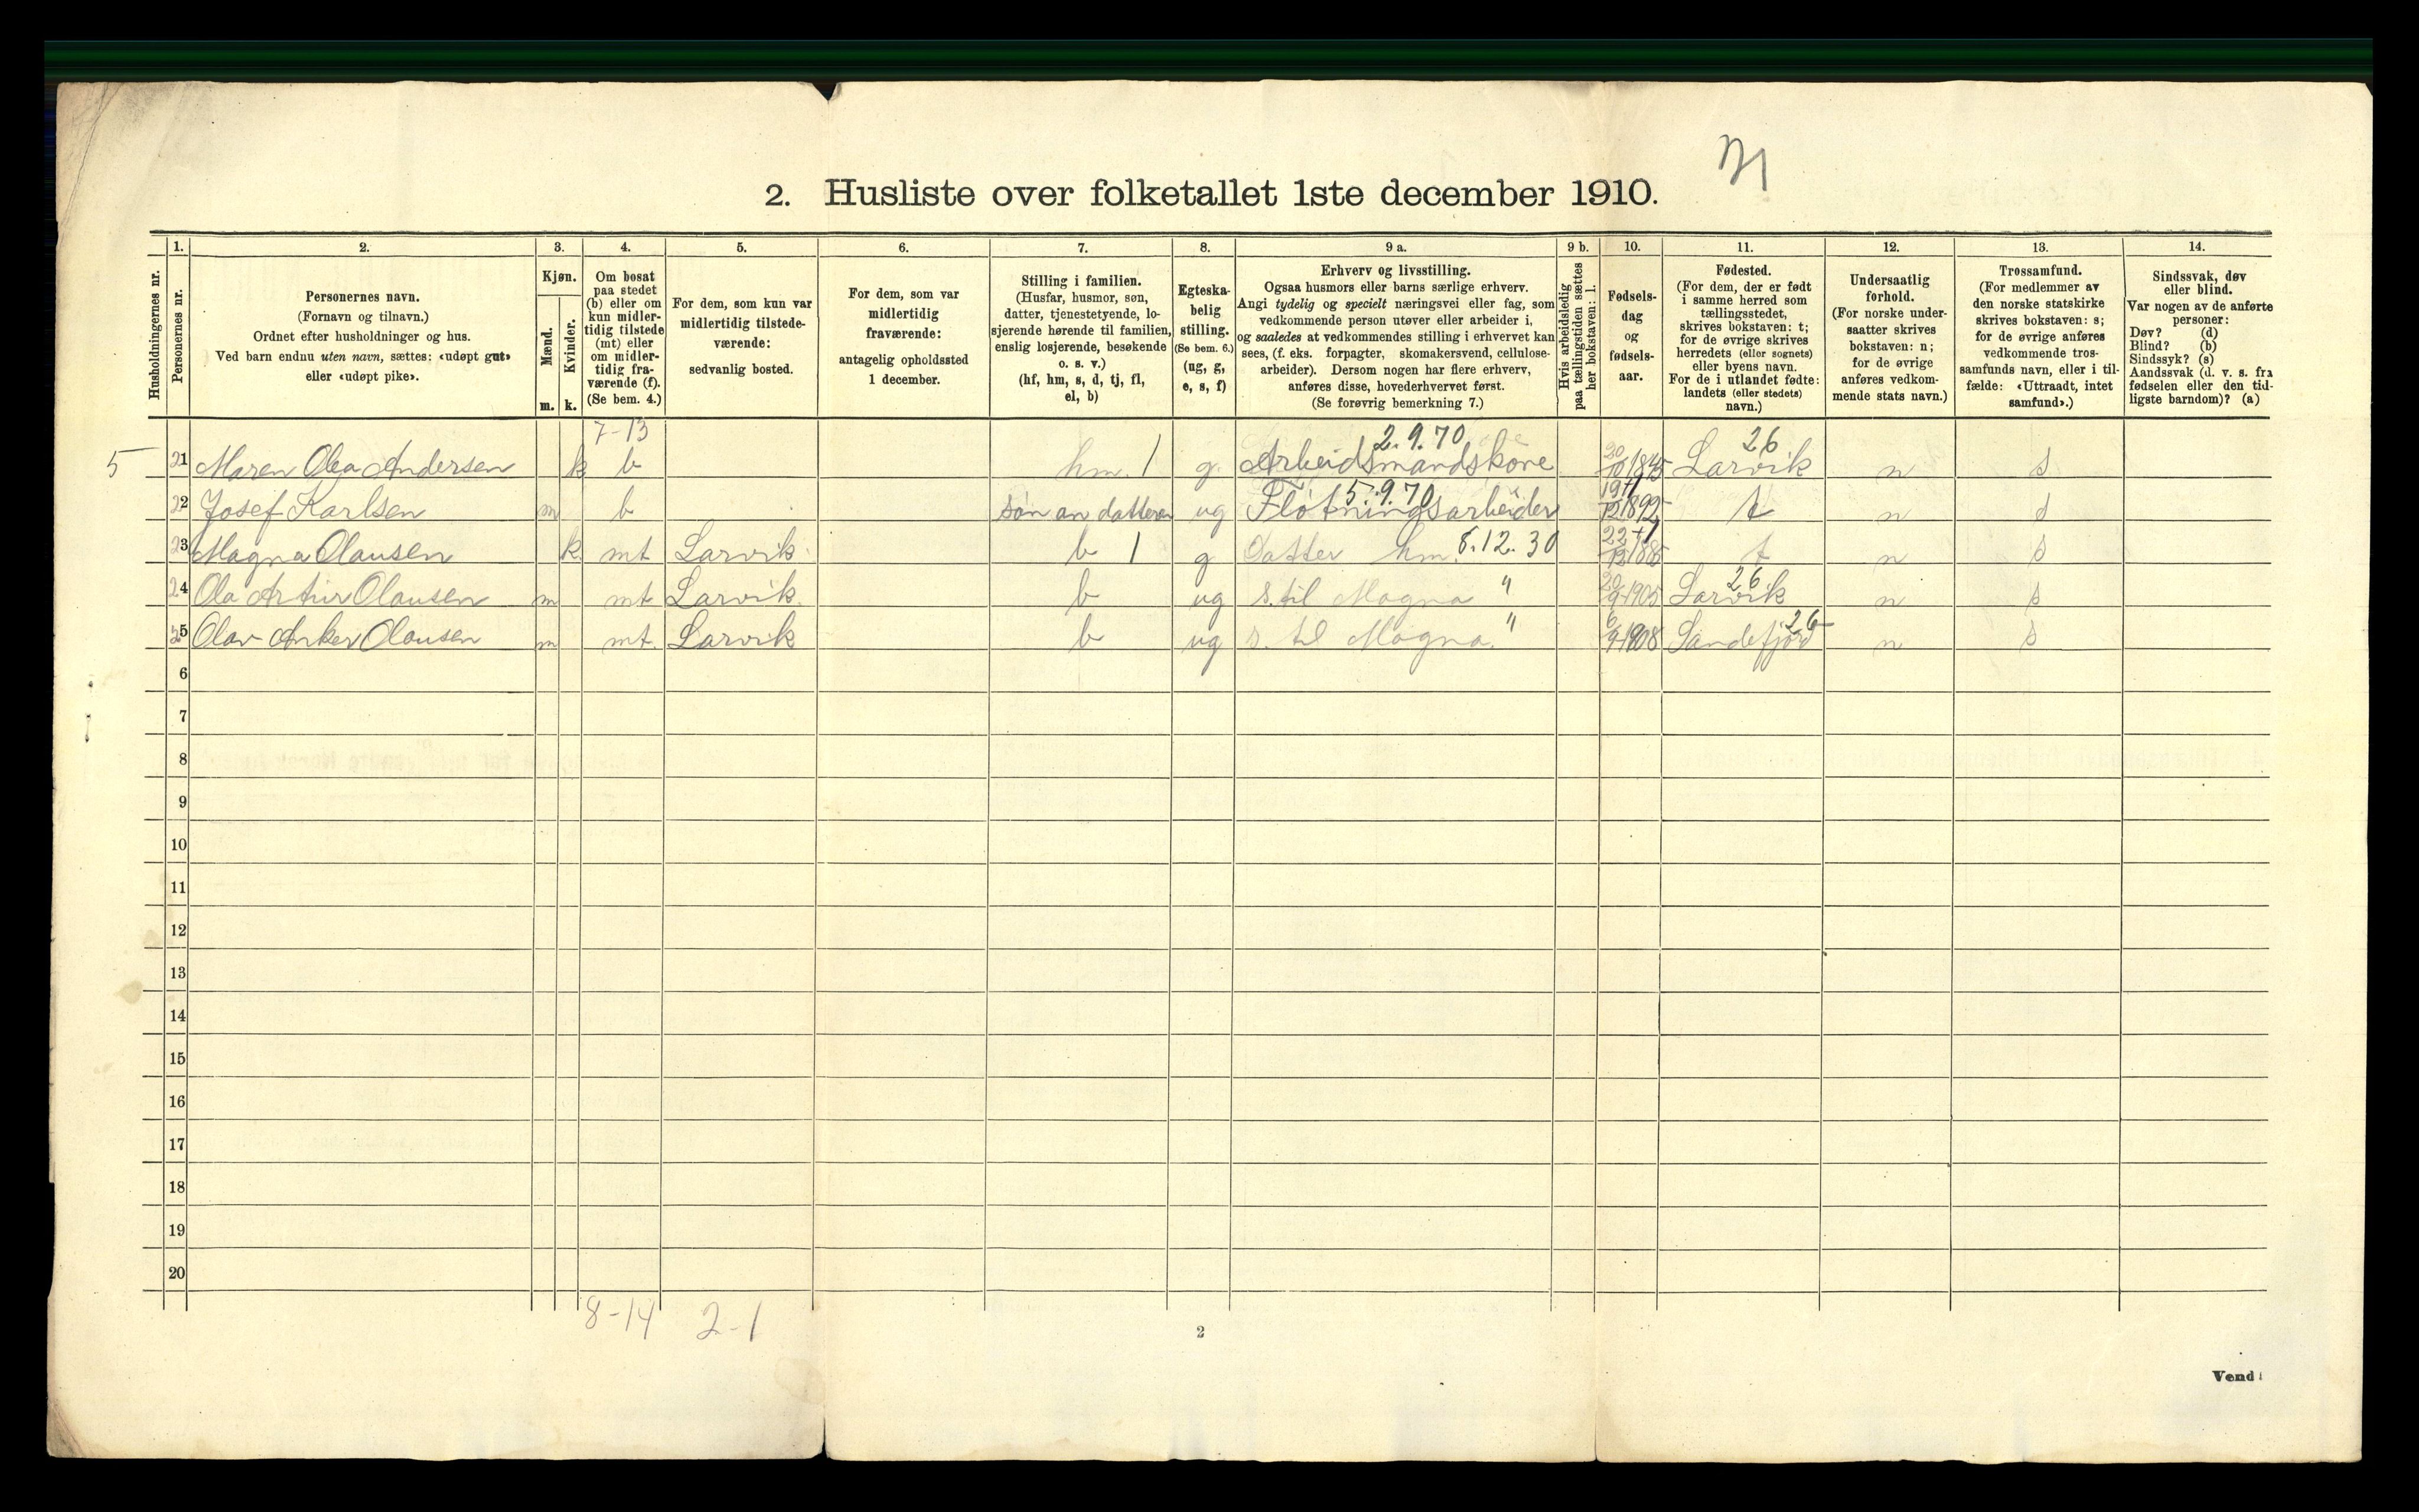 2. Husliste over folketallet 1ste december 1910.
Husholdningernes nr.
1.
Personernes nr.
2.
Personernes navn.
(Fornavn og tilnavn.)
Ordnet efter husholdninger og hus.
Ved barn endnu uten navn, sættes: «udøpt gut»
eller «udøpt pike».
3.
Kjøn.
Mænd.
Kvinder.
m. k.
4.
Om bosat
paa stedet
(b) eller om
kun midler-
tidig tilstede
(mt) eller
om midler-
tidig fra-
værende (f).
(Se bem. 4.)
5.
For dem, som kun var
midlertidig tilstede-
værende:
sedvanlig bosted.
6.
For dem, som var
midlertidig
fraværende:
antagelig opholdssted
1 december.
7.
Stilling i familien.
(Husfar, husmor, søn,
datter, tjenestetyende, lo-
sjerende hørende til familien,
enslig losjerende, besøkende
o. s. v.)
(hf, hm, s, d, tj, fl,
el, b)
8.
Egteska-
belig
stilling.
(Se bem. 6.)
(ug, g,
e, s, f)
9 a.
Erhverv og livsstilling.
Ogsaa husmors eller barns særlige erhverv.
Angi tydelig og specielt næringsvei eller fag, som
vedkommende person utøver eller arbeider i,
og saaledes at vedkommendes stilling i erhvervet kan
sees, (f. eks. forpagter, skomakersvend, cellulose-
arbeider). Dersom nogen har flere erhverv,
anføres disse, hovederhvervet først.
(Se forøvrig bemerkning 7.)
9 b.
Hvis arbeidsledig
paa tællingstiden sættes
her bokstaven: l.
10.
Fødsels-
dag
og
fødsels-
aar.
11.
Fødested.
(For dem, der er født
i samme herred som
tællingsstedet,
skrives bokstaven: t;
for de øvrige skrives
herredets (eller sognets)
eller byens navn.
For de i utlandet fødte:
landets (eller stedets)
navn.)
12.
Undersaatlig
forhold.
(For norske under-
saatter skrives
bokstaven: n;
for de øvrige
anføres vedkom-
mende stats navn.)
13.
Trossamfund.
(For medlemmer av
den norske statskirke
skrives bokstaven: s;
for de øvrige anføres
vedkommende tros-
samfunds navn, eller i til-
fælde: «Uttraadt, intet
samfund».)
14.
Sindssvak, døv
eller blind.
Var nogen av de anførte
personer:
Døv? (d)
Blind? (b)
Sindssyk? (s)
Aandssvak (d. v. s. fra
fødselen eller den tid-
ligste barndom)? (a)
7-13 2.9.70 26
5 21 Maren Olea Andersen k b hm. 1 g. Arbeidsmandskone 20/10 1845 Larvik n s
5.9.70
22 Josef Karlsen m b søn an datteren ug Fløtningsarbeider 19/12 1892 t n s
23 Magna Olausen k mt Larvik b 1 g Datter hm. 8.12.30 22/12 1885 t n s
26
24 Ola Artur Olausen m mt Larvik. b ug s. til Magna " 20/9 1905 Larvik n s
26
25 Olav Anker Olausen m mt. Larvik b ug s. til Magna. " 6/9 1908 Sandefjord n s
6
7
8
9
10
11
12
13
14
15
16
17
18
19
20
8-14 2-1
2
Vend!